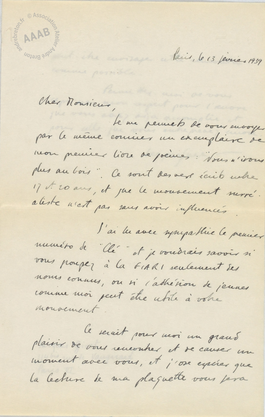 © Association Atelier André Breton
AAAB
Paris, le 13 janvier 1939
Cher Monsieur,
Je me permets de vous envoyer
par le même courrier un exemplaire de
mon premier livre de poèmes "Nous n'irons
plus au bois". Ce sont des vers écrits entre
17 et 20 ans, et que le mouvement surré-
aliste n'est pas sans avoir influencés.
J'ai lu avec sympathie le premier
numéro de "Clé" et je voudrais savoir si
vous groupez à la FIARI seulement des
noms connus, ou si l'adhésion de jeunes
comme moi peut être utile à votre
mouvement.
Ce serait pour moi un grand
plaisir de vous rencontrer et de causer un
moment avec vous, et j'ose espérer que
la lecture de ma plaquette vous fera